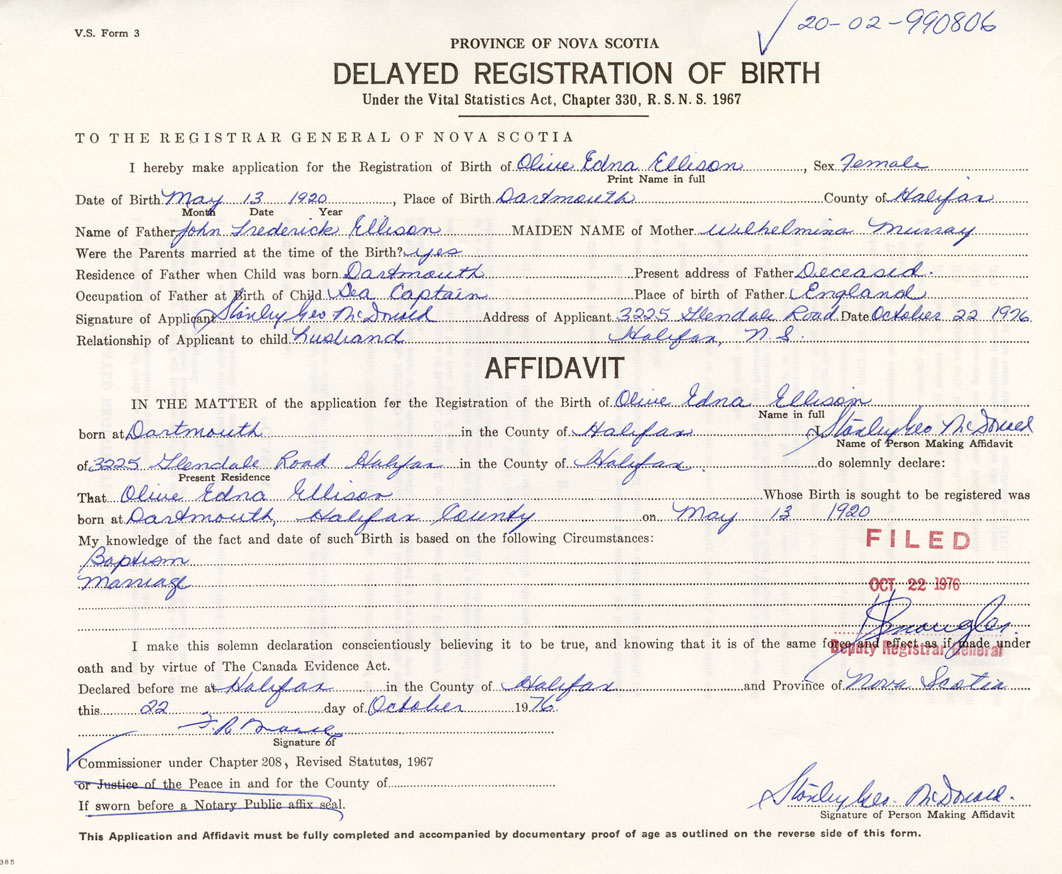 V.S. Form 3
20-02-990806
PROVINCE OF NOVA SCOTIA
DELAYED REGISTRATION OF BIRTH
Under the Vital Statistics Act, Chapter 330, R. S. N. S. 1967
TO THE REGISTRAR GENERAL OF NOVA SCOTIA
I hereby make application for the Registration of Birth of Olive Edna Ellison, Sex Female
Print Name in full
Date of Birth May 13 1920, Place of Birth Dartmouth County of Halifax
Month Date Year
Name of Father John Frederick Ellison MAIDEN NAME of Mother Wilhelmina Murray
Were the Parents married at the time of the Birth? yes
Residence of Father when Child was born Dartmouth Present address of Father Deceased.
Occupation of Father at Birth of Child Sea Captain Place of birth of Father England
Signature of Applicant Stanley Geo McDonald Address of Applicant 3225 Glendale Road Date October 22 1976
Relationship of Applicant to child husband Halifax, N.S.
AFFIDAVIT
IN THE MATTER of the application for the Registration of the Birth of Olive Edna Ellison
Name in full
born at Dartmouth in the County of Halifax I Stanley Geo McDonald
Name of Person Making Affidavit
of 3225 Glendale Road Halifax in the County of Halifax do solemnly declare:
Present Residence
That Olive Edna Ellison Whose Birth is sought to be registered was
born at Dartmouth, Halifax County on May 13 1920
My knowledge of the fact and date of such Birth is based on the following Circumstances:
FILED
Baptism
Marriage
OCT 22 1976
I make this solemn declaration conscientiously believing it to be true, and knowing that it is of the same force and effect as if made under
Deputy Registrar General
oath and by virtue of The Canada Evidence Act.
Declared before me at Halifax in the County of Halifax and Province of Nova Scotia
this 22 day of October 1976.
Signature of
Commissioner under Chapter 208, Revised Statutes, 1967
or Justice of the Peace in and for the County of
If sworn before a Notary Public affix seal.
Stanley Geo. McDonald.
Signature of Person Making Affidavit
This Application and Affidavit must be fully completed and accompanied by documentary proof of age as outlined on the reverse side of this form.
385